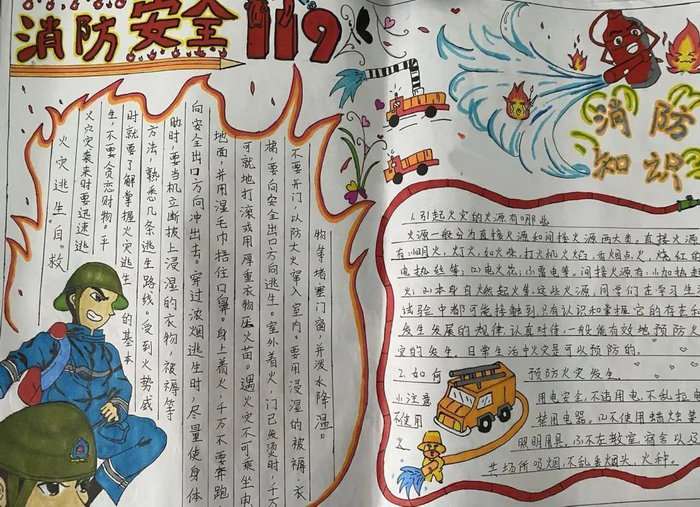 消防安全119
火灾逃生自救
火灾袭来时要迅速逃
生，不要贪恋财物。平
时就要了解掌握火灾逃生的基本
方法，熟悉几条逃生路线。受到火势威
胁时，要当机立断披上浸湿的衣物，被褥等
向安全出口方向冲出去。穿过浓烟逃生时，尽量使身体
地面，并用湿毛巾捂住口鼻。身上着火，千万不要奔跑，
可就地打滚或用厚重衣物压火苗。遇火灾不可乘坐电
梯，要向安全出口方向逃生。室外着火，门已发烫时，千万
不要开门，以防大火窜入室内，要用浸湿的被褥、衣
物等堵塞门窗，并泼水降温。
消防
知识
1.引起火灾的火源有哪些
火源一般分为直接火源和间接火源两大类，直接火源
有明火，灯火，如火柴，打火机火焰，香烟点火，烧红的
电热丝等，(2)电火花，(3)雷电等，间接火源有：(1)加热
火，(2)本身自燃起火等，这些火源，同学们在学习生活
试验中都可能接触到，只有认识和掌握它的存在和
发生发展的规律，认真对待，一般能有效地预防火
灾的发生，日常生活中火灾是可以预防的。
2.如何预防火灾发生
(1)注意用电安全，不诸用电，不乱拉电
不使用禁用电器。(2)不使用蜡烛坐
照明用具，(3)不在教室，宿舍以及
共场所吸烟，不乱丢烟头，火种。